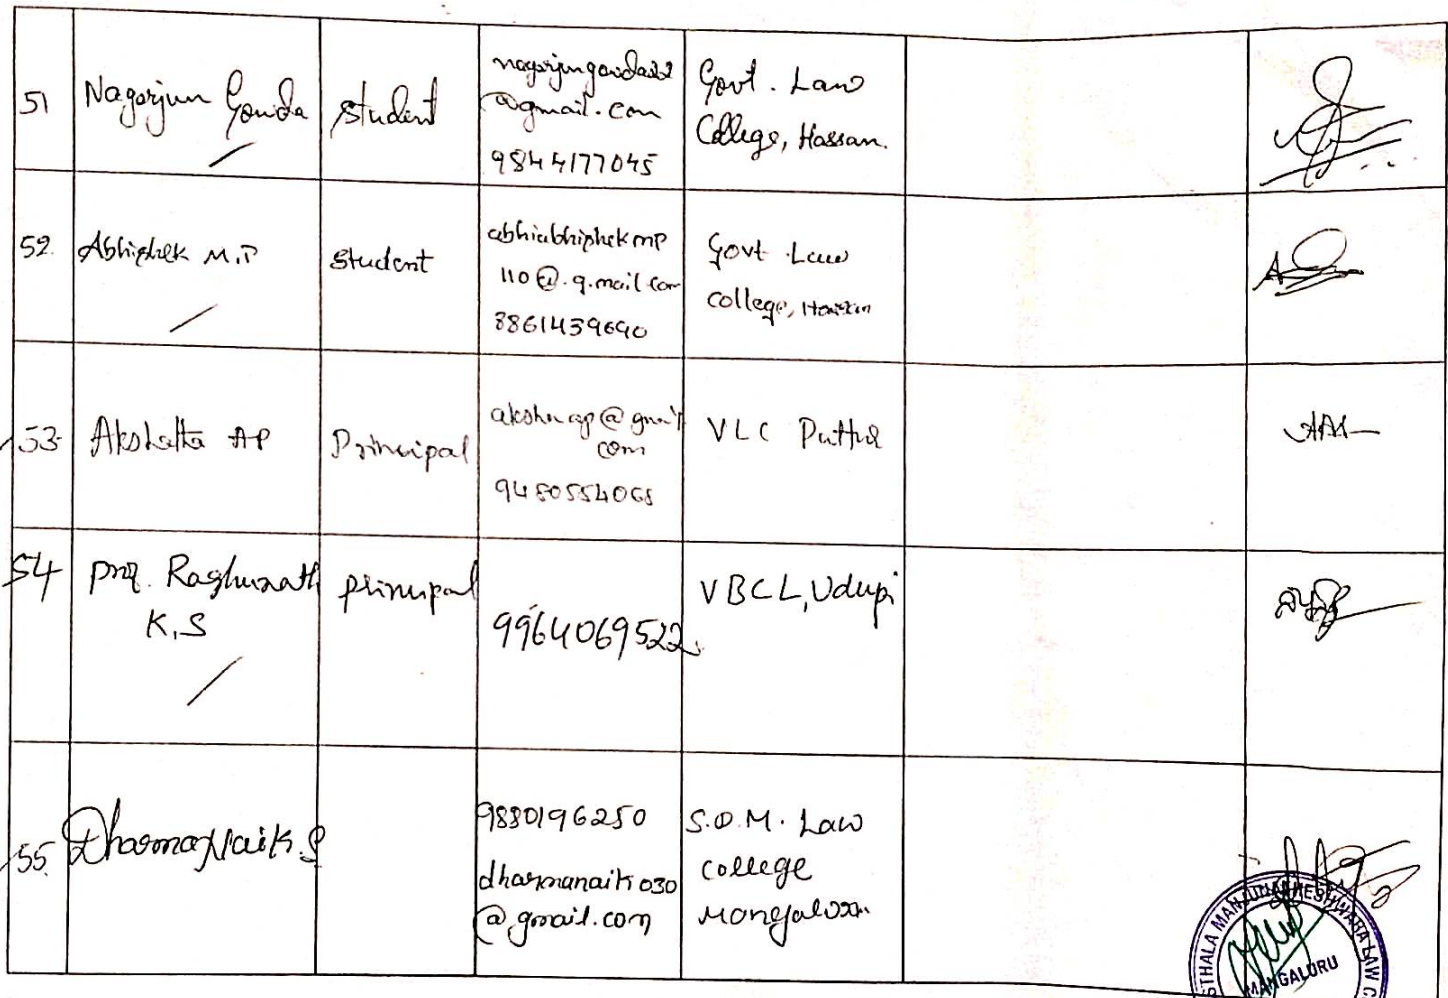 51
Nagarjun Gowda
Student
nagarjungowda22
@gmail.com
9844177045
Govt. Law
College, Hassan.
52.
Abhishek M.P
Student
abhiabhiphekmp
110@.g.mail.com
8861439690
Govt Law
college, Hassan
53.
Akshatha AP
Principal
@gmail
com
9480554068
VLC Puttur
54
Prof. Raghunath
K.S
principal
9964069522.
VBCL, Udupi
55.
Dharma Naik. S
9880196250
dharmanaik030
@gmail.com
S.D.M. Law
college
Mangaluru
STHALA MANJUNATHESHWARA LAW C
MANGALURU